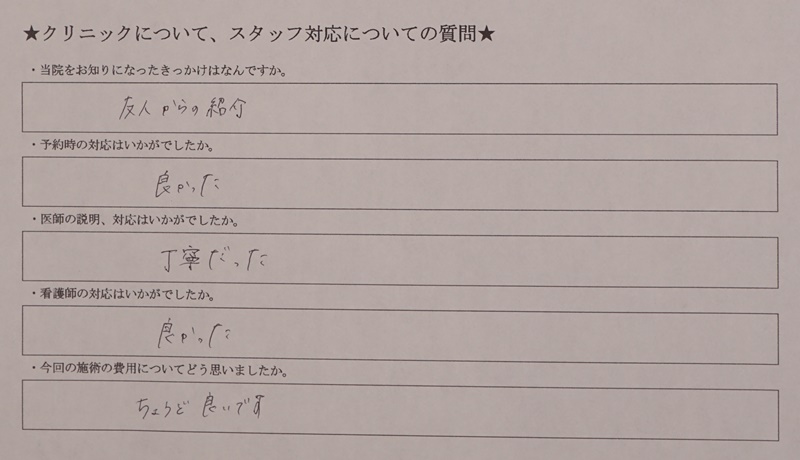 ★クリニックについて、スタッフ対応についての質問★
・当院をお知りになったきっかけはなんですか。
友人からの紹介
・予約時の対応はいかがでしたか。
良かった
・医師の説明、対応はいかがでしたか。
丁寧だった
・看護師の対応はいかがでしたか。
良かった
・今回の施術の費用についてどう思いましたか。
ちょうど良いです